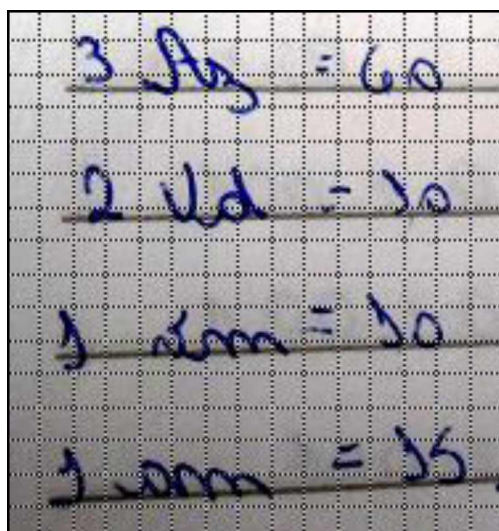 3 Az = 60
2 Vd = 10
1 am = 10
1 = 15